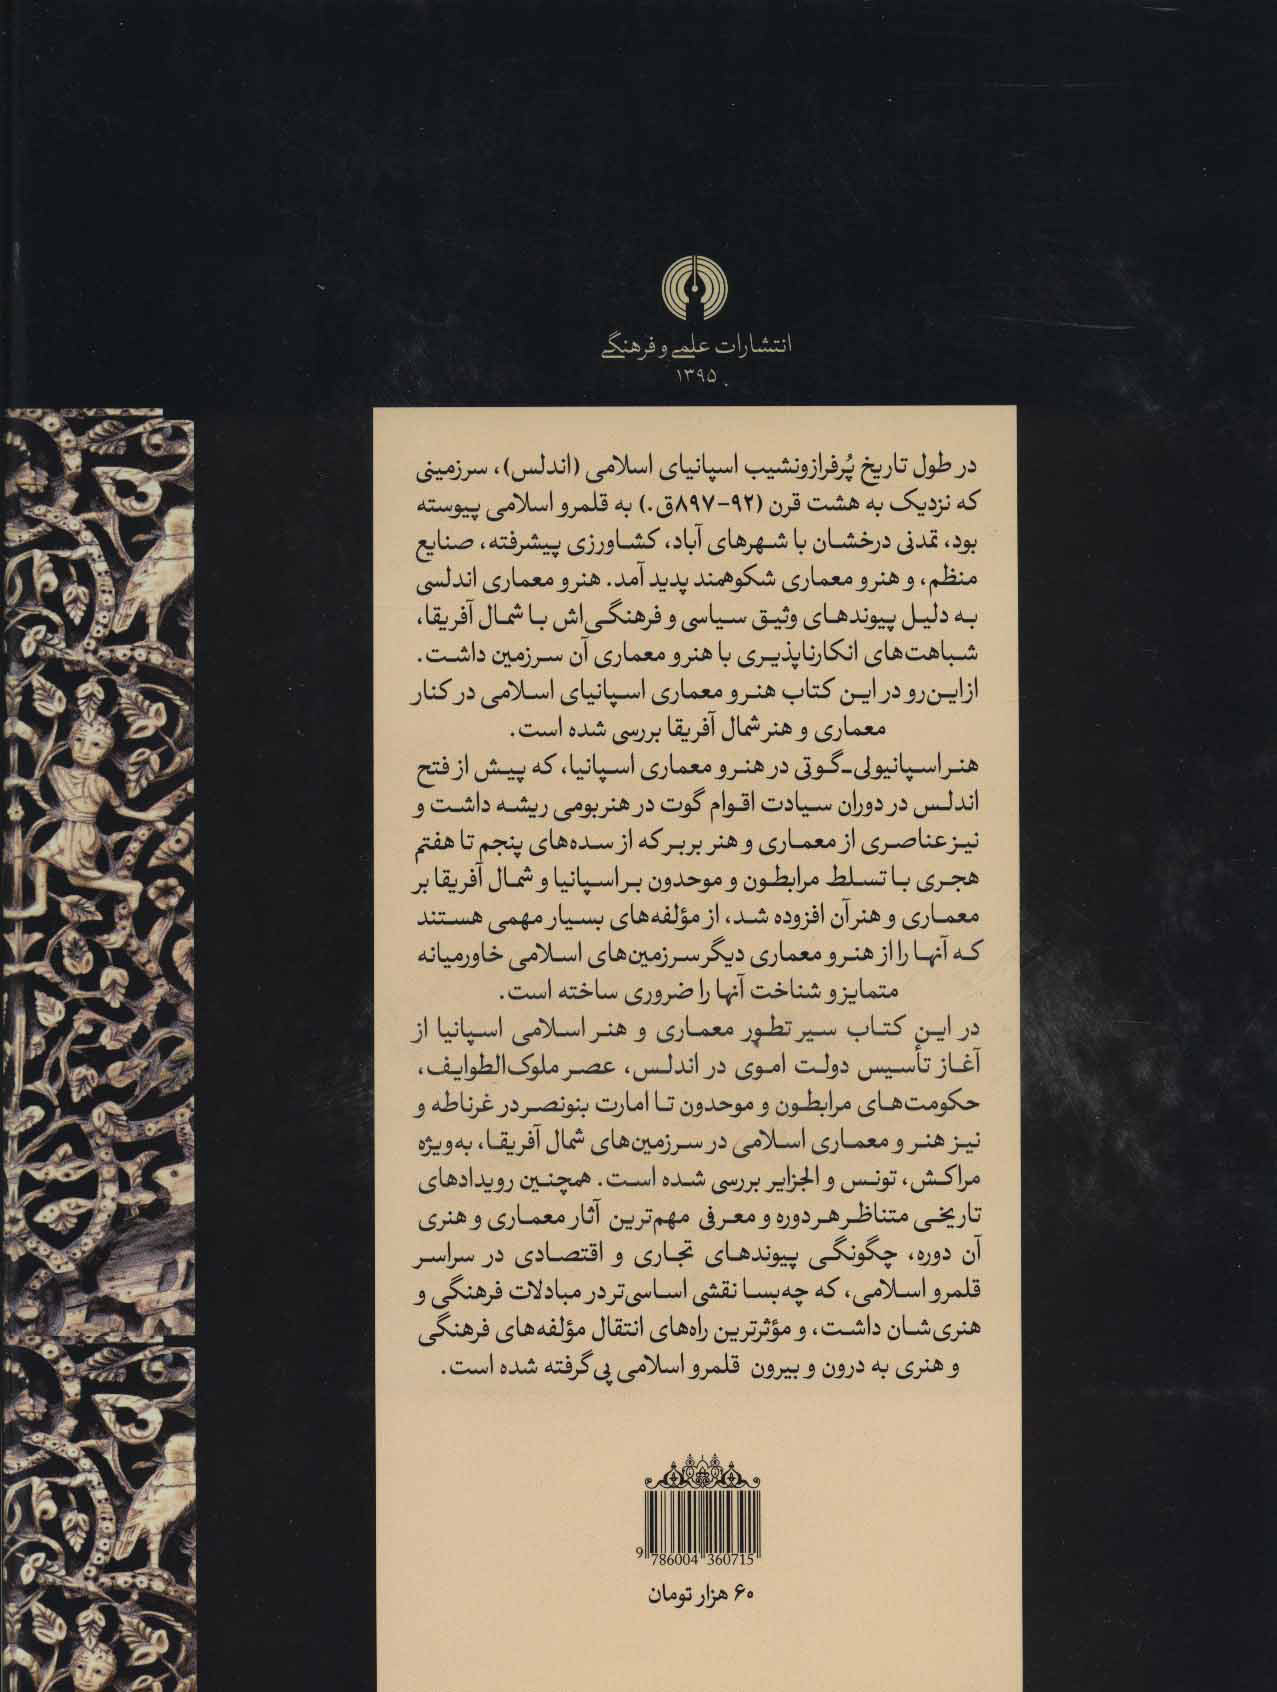 انتشارات علمی و فرهنگی
۱۳۹۵
در طول تاریخ پُرفرازونشیب اسپانیای اسلامی (اندلس)، سرزمینی
که نزدیک به هشت قرن (۹۲-۸۹۷ق.) به قلمرو اسلامی پیوسته
بود، تمدنی درخشان با شهرهای آباد، کشاورزی پیشرفته، صنایع
منظم، و هنر و معماری شکوهمند پدید آمد. هنر و معماری اندلسی
به دلیل پیوندهای وثیق سیاسی و فرهنگی‌اش با شمال آفریقا،
شباهت‌های انکارناپذیری با هنر و معماری آن سرزمین داشت.
ازاین‌رو در این کتاب هنر و معماری اسپانیای اسلامی در کنار
معماری و هنر شمال آفریقا بررسی شده است.
هنر اسپانیولی-گوتی در هنر و معماری اسپانیا، که پیش از فتح
اندلس در دوران سیادت اقوام گوت در هنر بومی ریشه داشت و
نیز عناصری از معماری و هنر بربر که از سده‌های پنجم تا هفتم
هجری با تسلط مرابطون و موحدون بر اسپانیا و شمال آفریقا بر
معماری و هنر آن افزوده شد، از مؤلفه‌های بسیار مهمی هستند
که آنها را از هنر و معماری دیگر سرزمین‌های اسلامی خاورمیانه
متمایز و شناخت آنها را ضروری ساخته است.
در این کتاب سیر تطور معماری و هنر اسلامی اسپانیا از
آغاز تأسیس دولت اموی در اندلس، عصر ملوک‌الطوایف،
حکومت‌های مرابطون و موحدون تا امارت بنونصر در غرناطه و
نیز هنر و معماری اسلامی در سرزمین‌های شمال آفریقا، به‌ویژه
مراکش، تونس و الجزایر بررسی شده است. همچنین رویدادهای
تاریخی متناظر هر دوره و معرفی مهم‌ترین آثار معماری و هنری
آن دوره، چگونگی پیوندهای تجاری و اقتصادی در سراسر
قلمرو اسلامی، که چه‌بسا نقشی اساسی‌تر در مبادلات فرهنگی و
هنری‌شان داشت، و مؤثرترین راه‌های انتقال مؤلفه‌های فرهنگی
و هنری به درون و بیرون قلمرو اسلامی پی‌گرفته شده است.
9 786004 360715
۶۰ هزار تومان